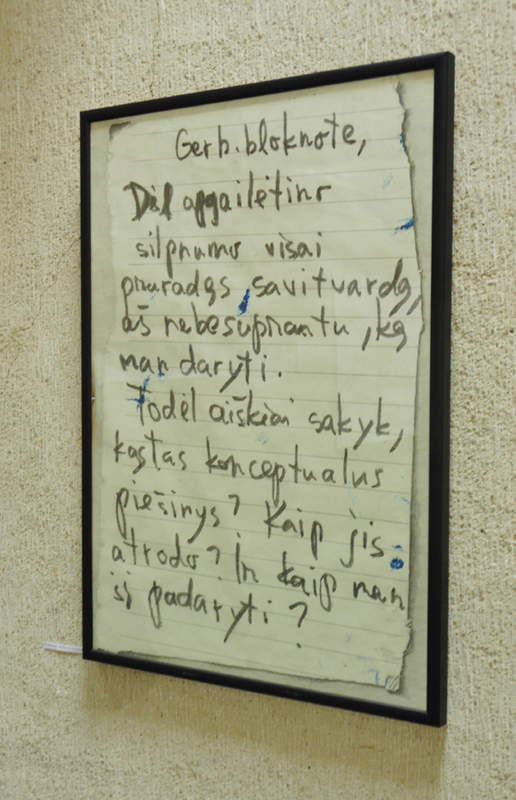 Gerb. bloknote,
Dėl apgailėtino
silpnumo visai
praradęs savitvardą,
aš nebesuprantu, ką
man daryti.
Todėl aiškiai sakyk,
kas tas konceptualus
piešinys? Kaip jis
atrodo? Ir kaip man
jį padaryti?